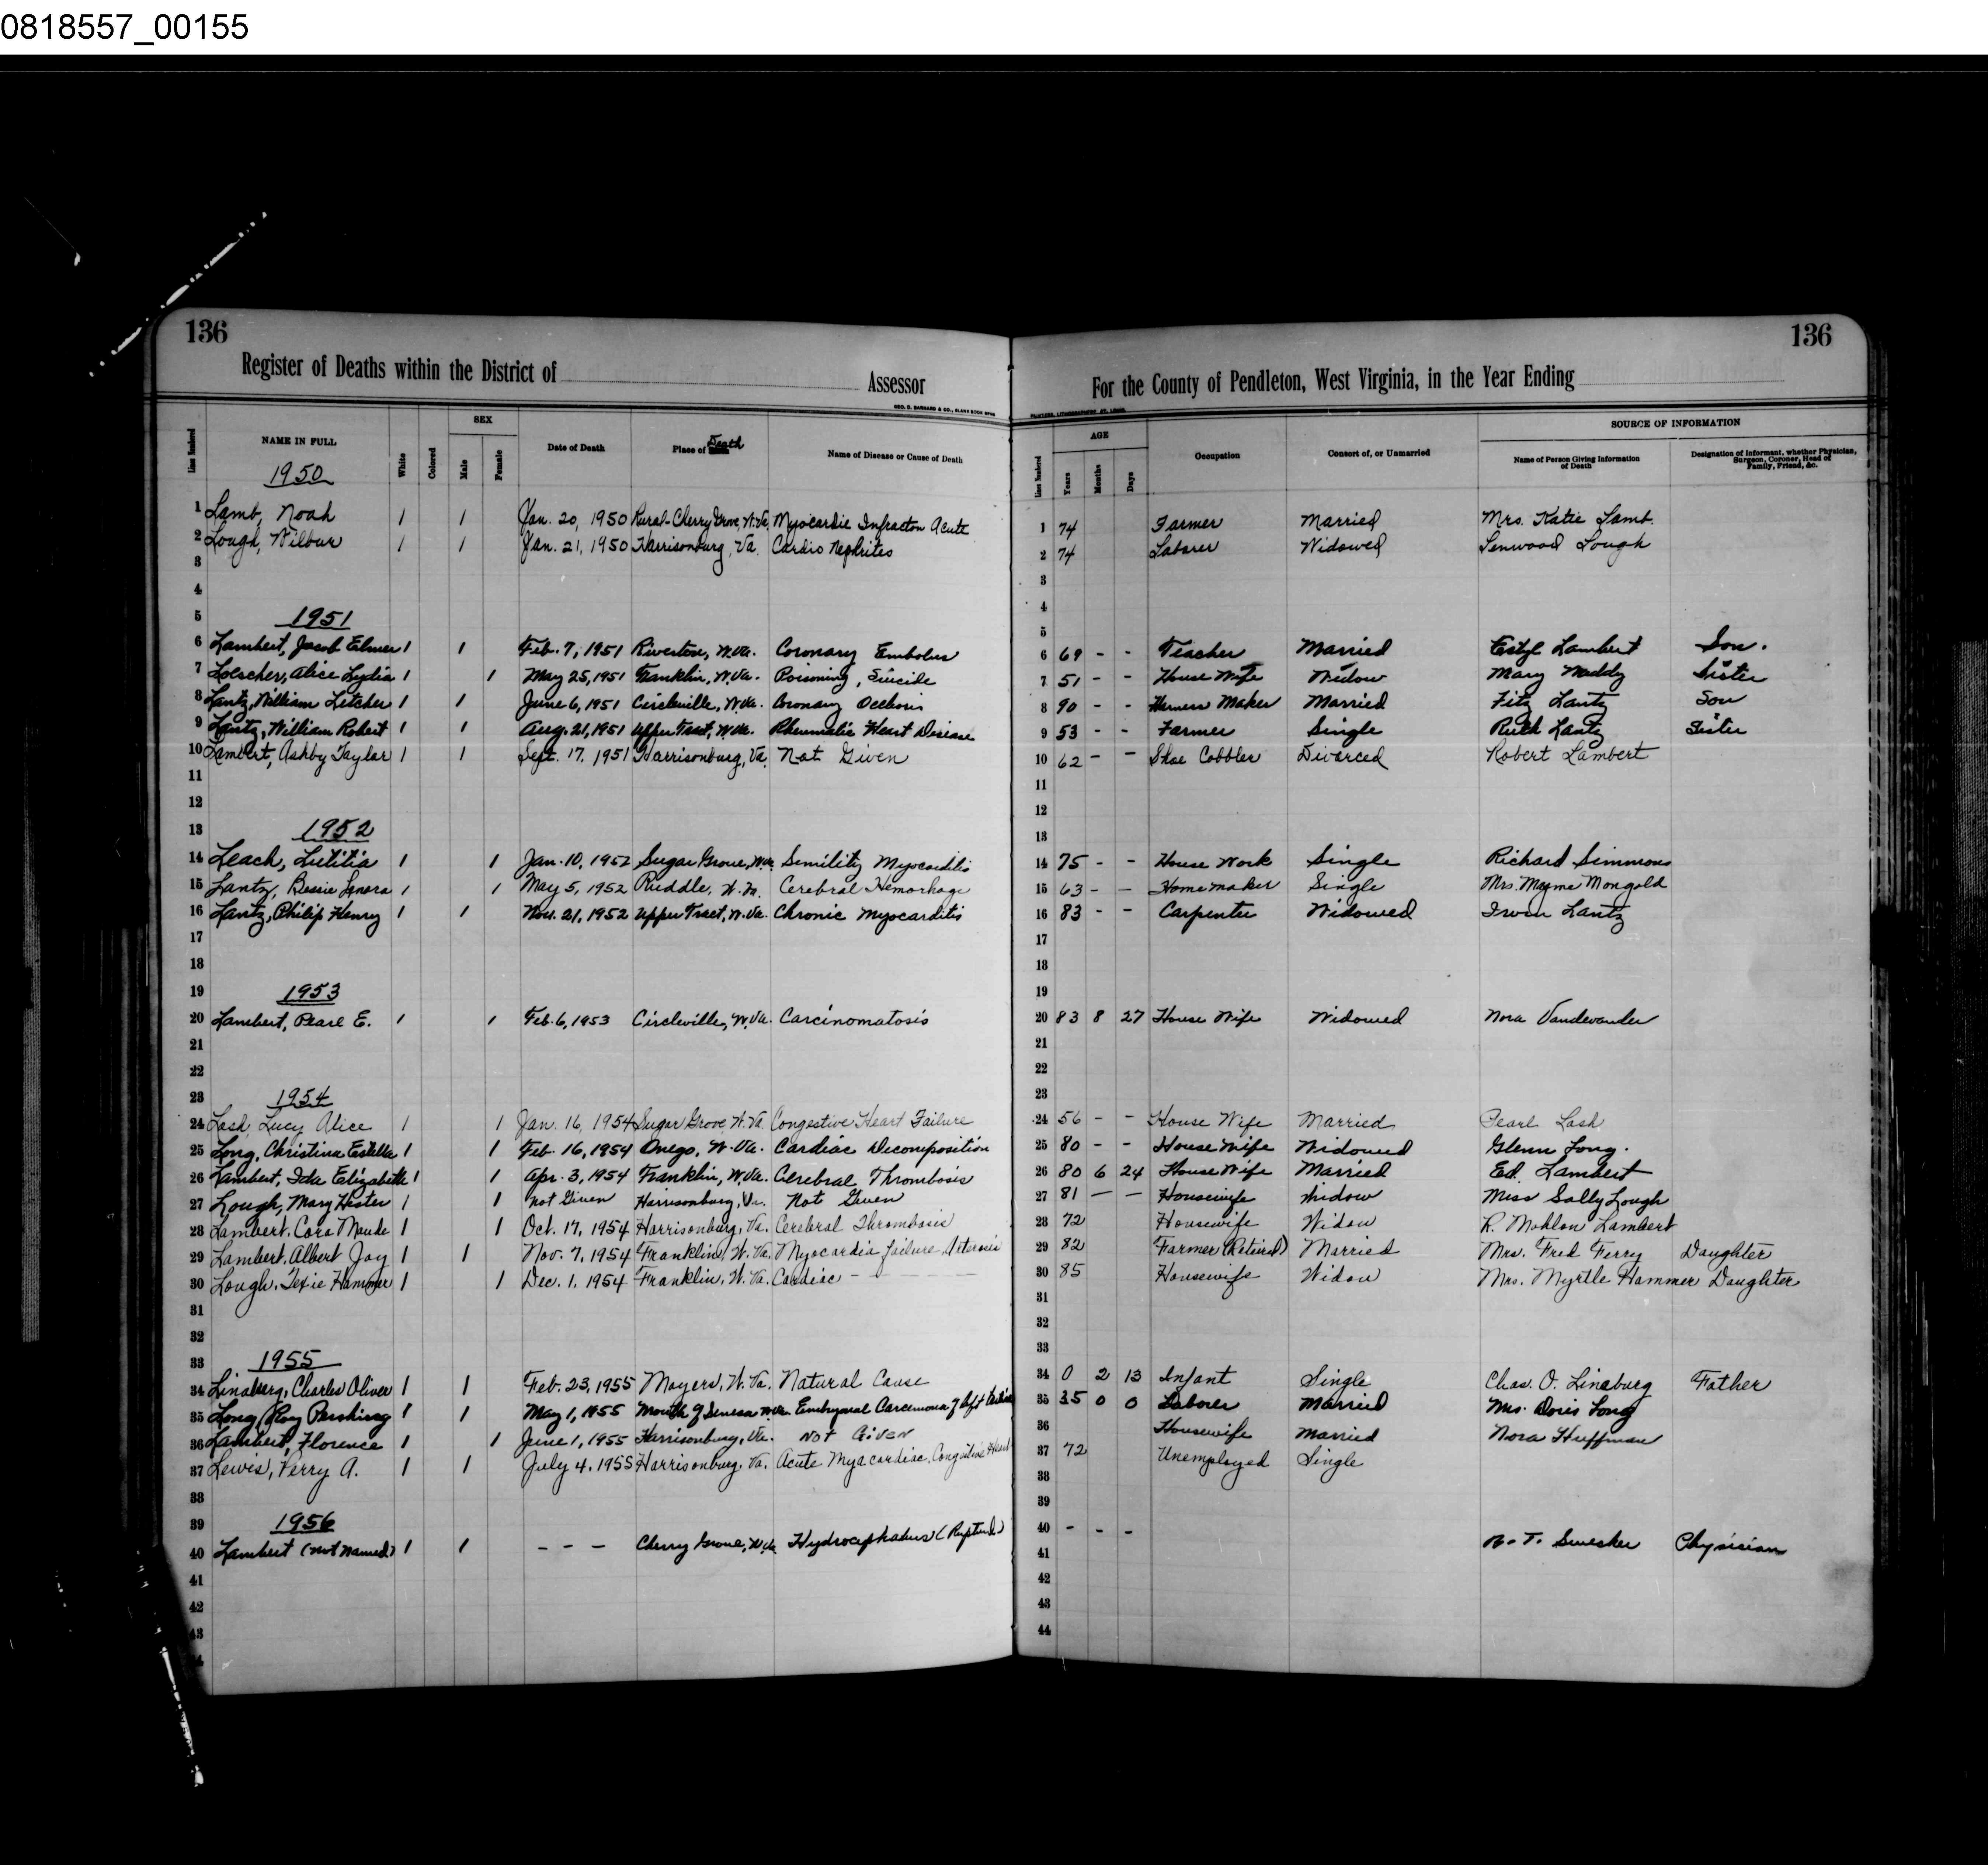 0818557_00155
136
136
Register of Deaths within the District of Assessor
For the County of Pendleton, West Virginia, in the Year Ending
GEO. D. BARNARD & CO., BLANK BOOK MFRS
PRINTERS, LITHOGRAPHERS, ST. LOUIS
Line Numbered NAME IN FULL White Colored SEX Male Female Date of Death Place of Death Name of Disease or Cause of Death
Line Numbered AGE Years Months Days Occupation Consort of, or Unmarried SOURCE OF INFORMATION Name of Person Giving Information of Death Designation of Informant, whether Physician, Surgeon, Coroner, Head of Family, Friend, &c.
1950
1 Lamb, Noah 1 1 Jan. 20, 1950 Rural-Cherry Grove, W.Va. Myocardic Infraction Acute 1 74 Farmer Married Mrs. Katie Lamb.
2 Lough, Wilbur 1 1 Jan. 21, 1950 Harrisonburg, Va. Cardio Nephrites 2 74 Laborer Widowed Lenwood Lough
3 3
4 4
5 1951 5
6 Lambert, Jacob Elmer 1 1 Feb. 7, 1951 Riverton, W.Va. Coronary Embolus 6 69 - - Teacher Married Estyl Lambert Son.
7 Loescher, Alice Lydia 1 1 May 25, 1951 Franklin, W.Va. Poisoning, Suicide 7 51 - - House Wife Widow Mary Maddy Sister
8 Lantz, William Letcher 1 1 June 6, 1951 Circleville, W.Va. Coronary Occlusion 8 90 - - Harness Maker Married Fitz Lantz Son
9 Lantz, William Robert 1 1 Aug. 21, 1951 Upper Tract, W.Va. Rheumatic Heart Disease 9 53 - - Farmer Single Ruth Lantz Sister
10 Lambert, Ashby Taylor 1 1 Sept. 17, 1951 Harrisonburg, Va. Not Given 10 62 - - Shoe Cobbler Divorced Robert Lambert
11 11
12 12
13 1952 13
14 Leach, Lutitia 1 1 Jan. 10, 1952 Sugar Grove, W.Va. Semility Myocarditis 14 75 - - House Work Single Richard Simmons
15 Lantz, Bessie Lenora 1 1 May 5, 1952 Ruddle, W.Va. Cerebral Hemorhage 15 63 - - Homemaker Single Mrs. Mayme Mongold
16 Lantz, Philip Henry 1 1 Nov. 21, 1952 Upper Tract, W.Va. Chronic Myocarditis 16 83 - - Carpenter Widowed Irwin Lantz
17 17
18 18
19 1953 19
20 Lambert, Pearl E. 1 1 Feb. 6, 1953 Circleville, W.Va. Carcinomatosis 20 83 8 27 House Wife Widowed Nora Vandevander
21 21
22 22
23 1954 23
24 Lash, Lucy Alice 1 1 Jan. 16, 1954 Sugar Grove W.Va. Congestive Heart Failure 24 56 - - House Wife Married Pearl Lash
25 Long, Christina Estella 1 1 Feb. 16, 1954 Onego, W.Va. Cardiac Decomposition 25 80 - - House Wife Widowed Glenn Long.
26 Lambert, Ida Elizabeth 1 1 Apr. 3, 1954 Franklin, W.Va. Cerebral Thrombosis 26 80 6 24 House Wife Married Ed. Lambert
27 Lough, Mary Hester 1 1 Not Given Harrisonburg, Va. Not Given 27 81 - - Housewife Widow Miss Sally Lough
28 Lambert, Cora Maude 1 1 Oct. 17, 1954 Harrisonburg, Va. Cerebral Thrombosis 28 72 Housewife Widow R. Mohlon Lambert
29 Lambert, Albert Jay 1 1 Nov. 7, 1954 Franklin, W.Va. Myocardia failure 29 82 Farmer (Retired) Married Mrs. Fred Ferry Daughter
30 Lough, Texie Hammer 1 1 Dec. 1, 1954 Franklin, W.Va. Cardiac - - - 30 85 Housewife Widow Mrs. Myrtle Hammer Daughter
31 31
32 32
33 1955 33
34 Linaberg, Charles Oliver 1 1 Feb. 23, 1955 Moyers, W.Va. Natural Cause 34 0 2 13 Infant Single Chas. O. Lineburg Father
35 Long, Roy Pershing 1 1 May 1, 1955 Mouth of Seneca W.Va. Embryonal Carcinoma of left 35 35 0 0 Laborer Married Mrs. Doris Long
36 Lambert, Florence 1 1 June 1, 1955 Harrisonburg, Va. Not Given 36 Housewife Married Nora Huffman
37 Lewis, Perry A. 1 1 July 4, 1955 Harrisonburg, Va. Acute Myacardiac, Congestive Heart 37 72 Unemployed Single
38 38
39 1956 39
40 Lambert (not named) 1 1 - - - Cherry Grove, W.Va. Hydrocephalus (Ruptured) 40 - - - Physician
41 41
42 42
43 43
44